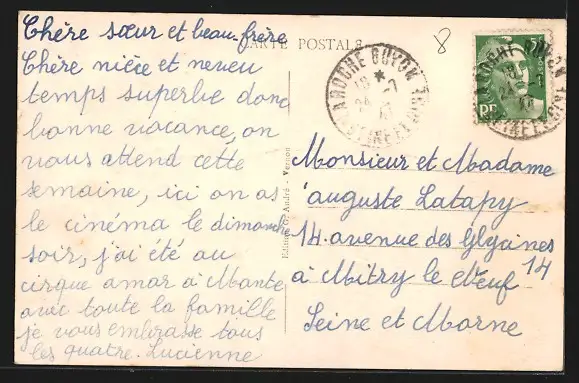 Chère sœur et beau-frère
CARTE POSTALE
8
Chère nièce et neveu
temps superbe donc
bonne vacance, on
vous attend cette
semaine, ici on as
le cinéma le dimanche
soir, j'ai été au
cirque amar à Mante
avec toute la famille
je vous embrasse tous
les quatre. Lucienne
Edition André - Vernon
LAROCHE GUYON
18
Monsieur et Madame
auguste Latapy
14. avenue des Glycines
14
à Mitry le Neuf
Seine et Marne